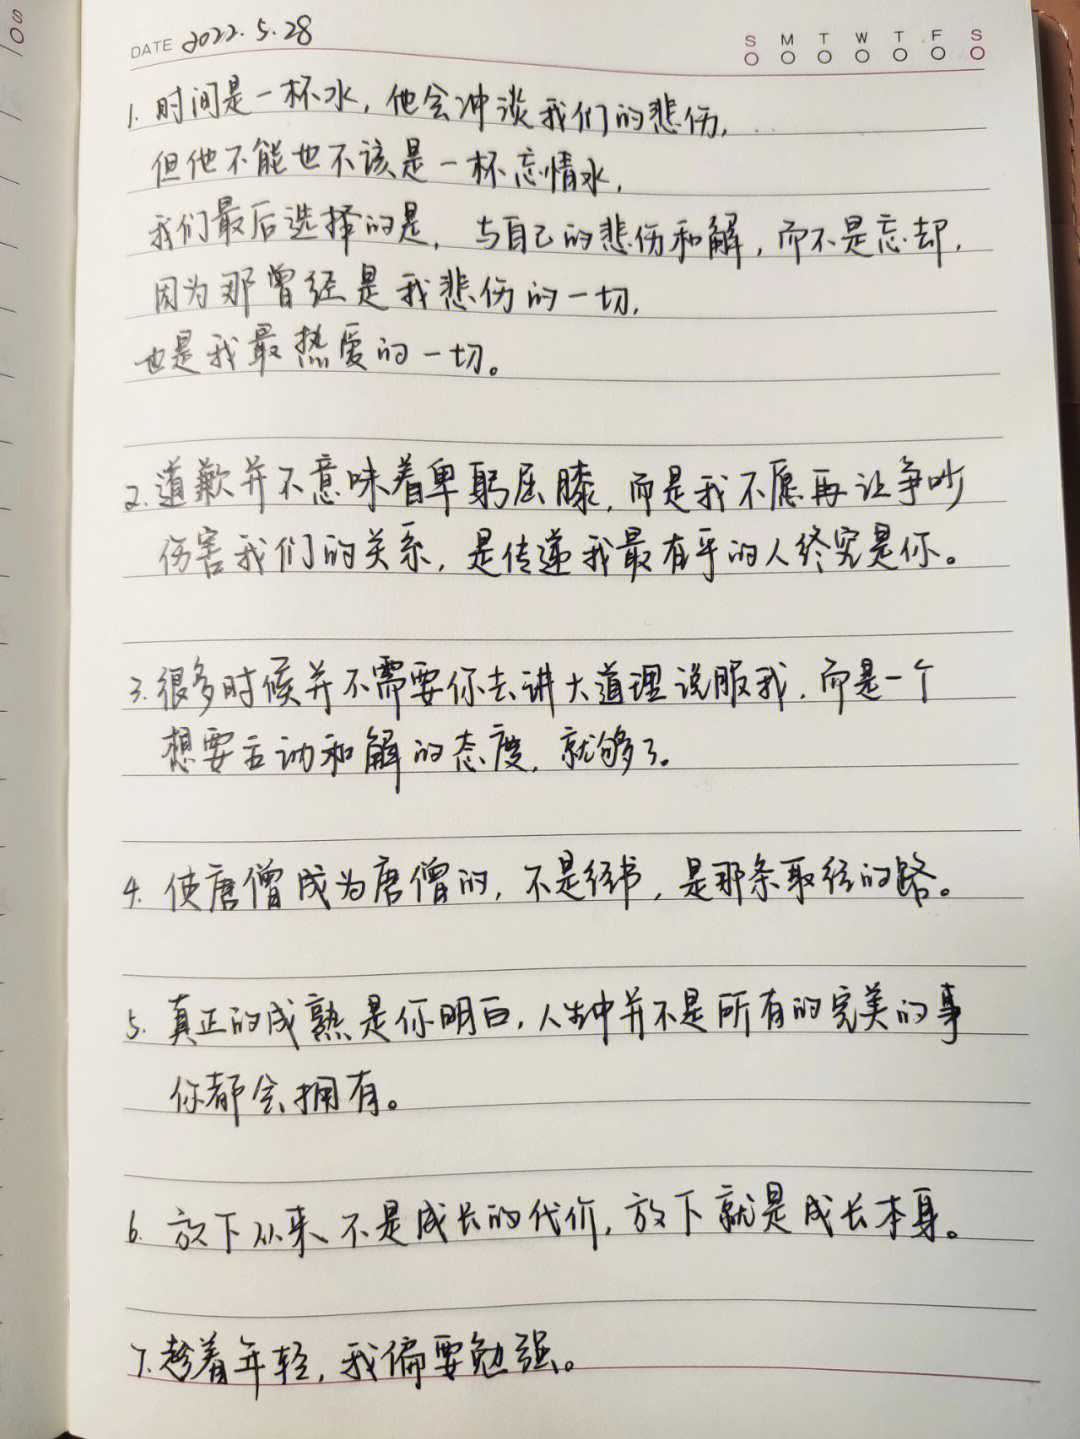 SO
DATE 2022.5.28
S M T W T F S
1. 时间是一杯水，他会冲淡我们的悲伤，
但他不能也不该是一杯忘情水，
我们最后选择的是，与自己的悲伤和解，而不是忘却，
因为那曾经是我悲伤的一切，
也是我最热爱的一切。
2. 道歉并不意味着卑躬屈膝，而是我不愿再让争吵
伤害我们的关系，是传递我最有乎的人终究是你。
3. 很多时候并不需要你去讲大道理说服我，而是一个
想要主动和解的态度，就够了。
4. 使唐僧成为唐僧的，不是经书，是那条取经的路。
5. 真正的成熟是你明白，人生中并不是所有的完美的事
你都会拥有。
6. 放下从来不是成长的代价，放下就是成长本身。
7. 趁着年轻，我偏要勉强。